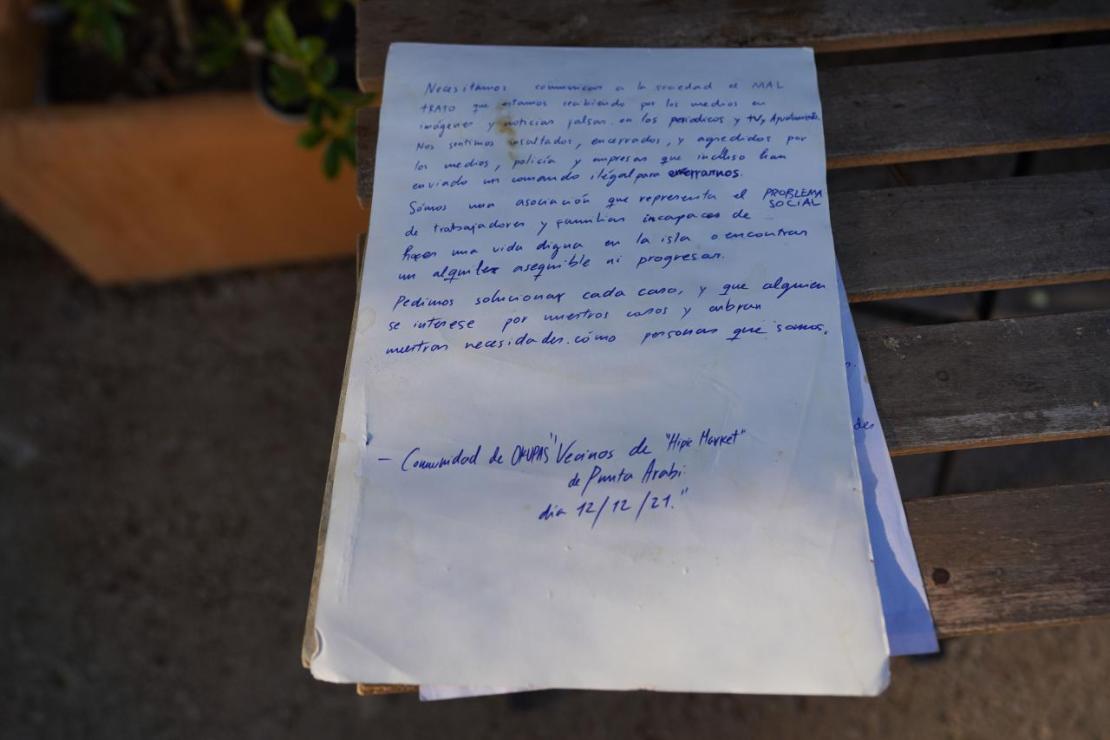 Necesitamos comunicar a la sociedad el MAL
TRATO que estamos recibiendo por los medios en
imágenes y noticias falsas. en los periodicos y TV, Ayuntamiento.
Nos sentimos insultados, encerrados, y agredidos por
los medios, policía y empresas que incluso han
enviado un comando ilégal para encerrarnos.
Sómos una asociación que representa el PROBLEMA
SOCIAL
de trabajadores y familias incapaces de
hacer una vida digna en la isla o encontrar
un alquiler asequible ni progresar.
Pedimos solucionar cada caso, y que alguien
se interese por nuestros casos y cubran
nuestras necesidades. cómo personas que somos.
— Comunidad de OKUPAS "Vecinos de "Hipie Market"
de Punta Arabi
dia 12/12/21."
des